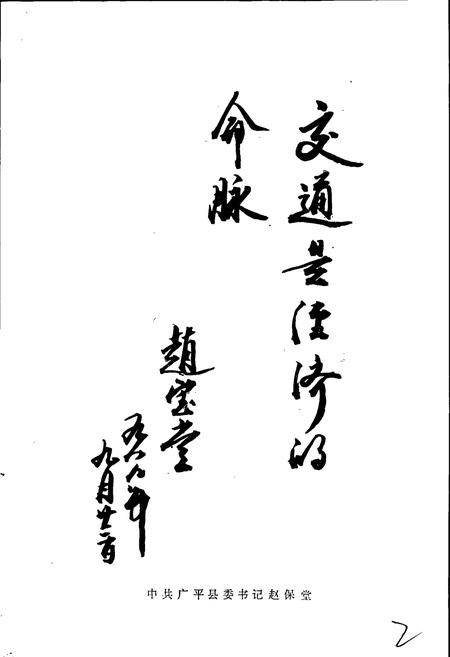 交通是经济的
命脉
趙宝堂
九月廿一日
中共广平县委书记赵保堂
2